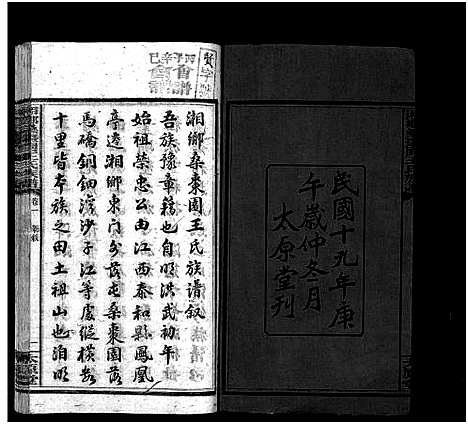 民國十九年庚
午歲仲冬月
太原堂刊
湘鄉桑棗園王氏族譜叙
吾族豫章籍也自明洪武初年
始祖榮忠公由江西泰和縣鳳凰
亭遶湘鄉東門外落屯桑棗園落
馬礄銅鈿灣沙子江等處縱橫數
十里皆本族之田土祖山也洎明
卷一